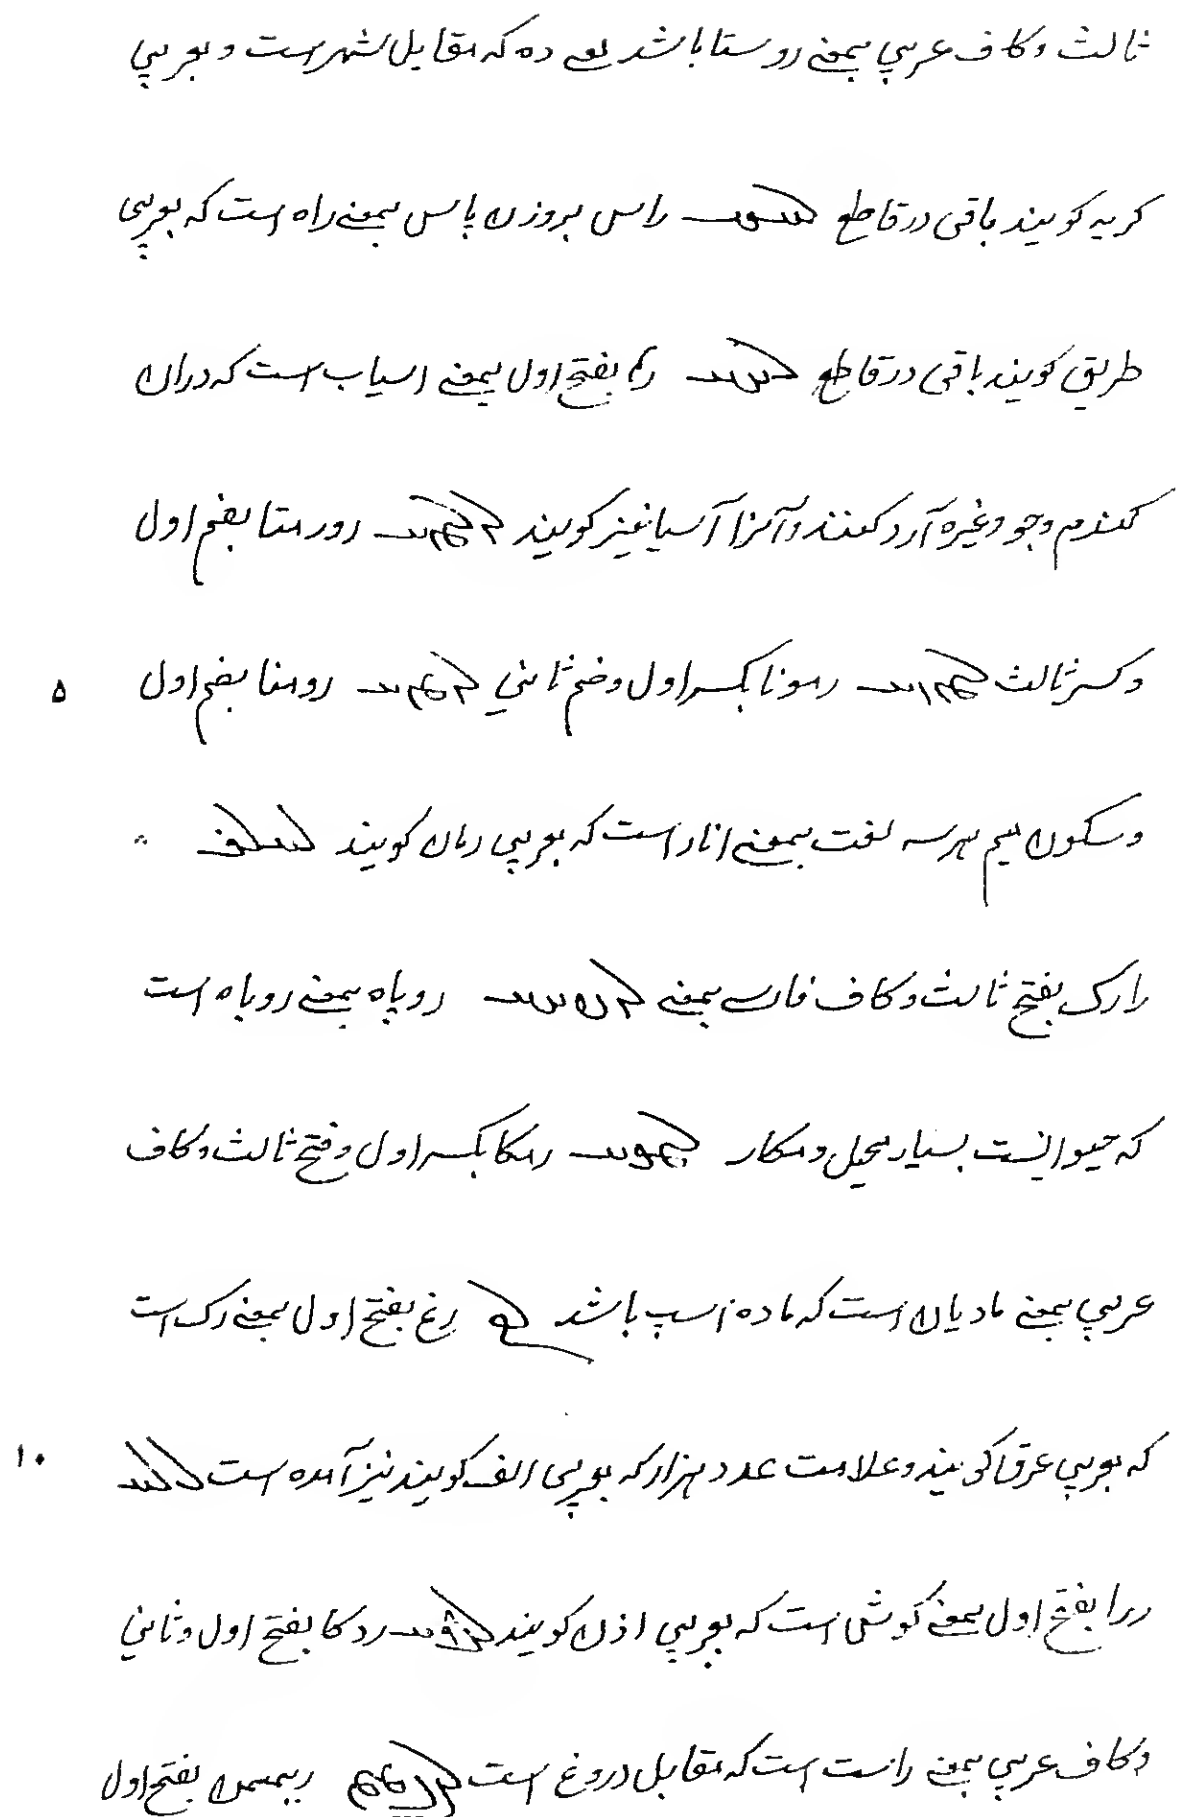 ثالث وكاف عربي بمعنے روستا باشد يعے ده كه مقابل شهرست و بعربي
كريه كويند باقى درقاطع راس بروزن پاس بمعنے راه است كه بعربى
طريق كويند باقى درقاطع بفتح اول بمعنے اسياب است كه دران
كندم وجو وغيره آرد كنند وآنرا آسيا نيز كويند رورمنا بضم اول
وكسر ثالث رمونا بكسر اول وضم ثاني رومنا بضم اول
٥
وسكون ميم هرسه لغت بمعنے انار است كه بعربي رمان كويند
رارك بفتح ثالث وكاف فارسے بمعنے روپاه بمعنے روباه است
كه حيوانيست بسيار محيل ومكار رمكا بكسر اول وفتح ثالث وكاف
عربي بمعنے ماديان است كه ماده اسپ باشد رغ بفتح اول بمعنے رك است
كه بعربي عرق كويند وعلامت عدد هزار كه بعربى الف كويند نيز آمده است
١٠
ررا بفتح اول بمعنے كوش است كه بعربي اذن كويند ردكا بفتح اول وثاني
وكاف عربي بمعنے راست است كه مقابل دروغ است بفتح اول